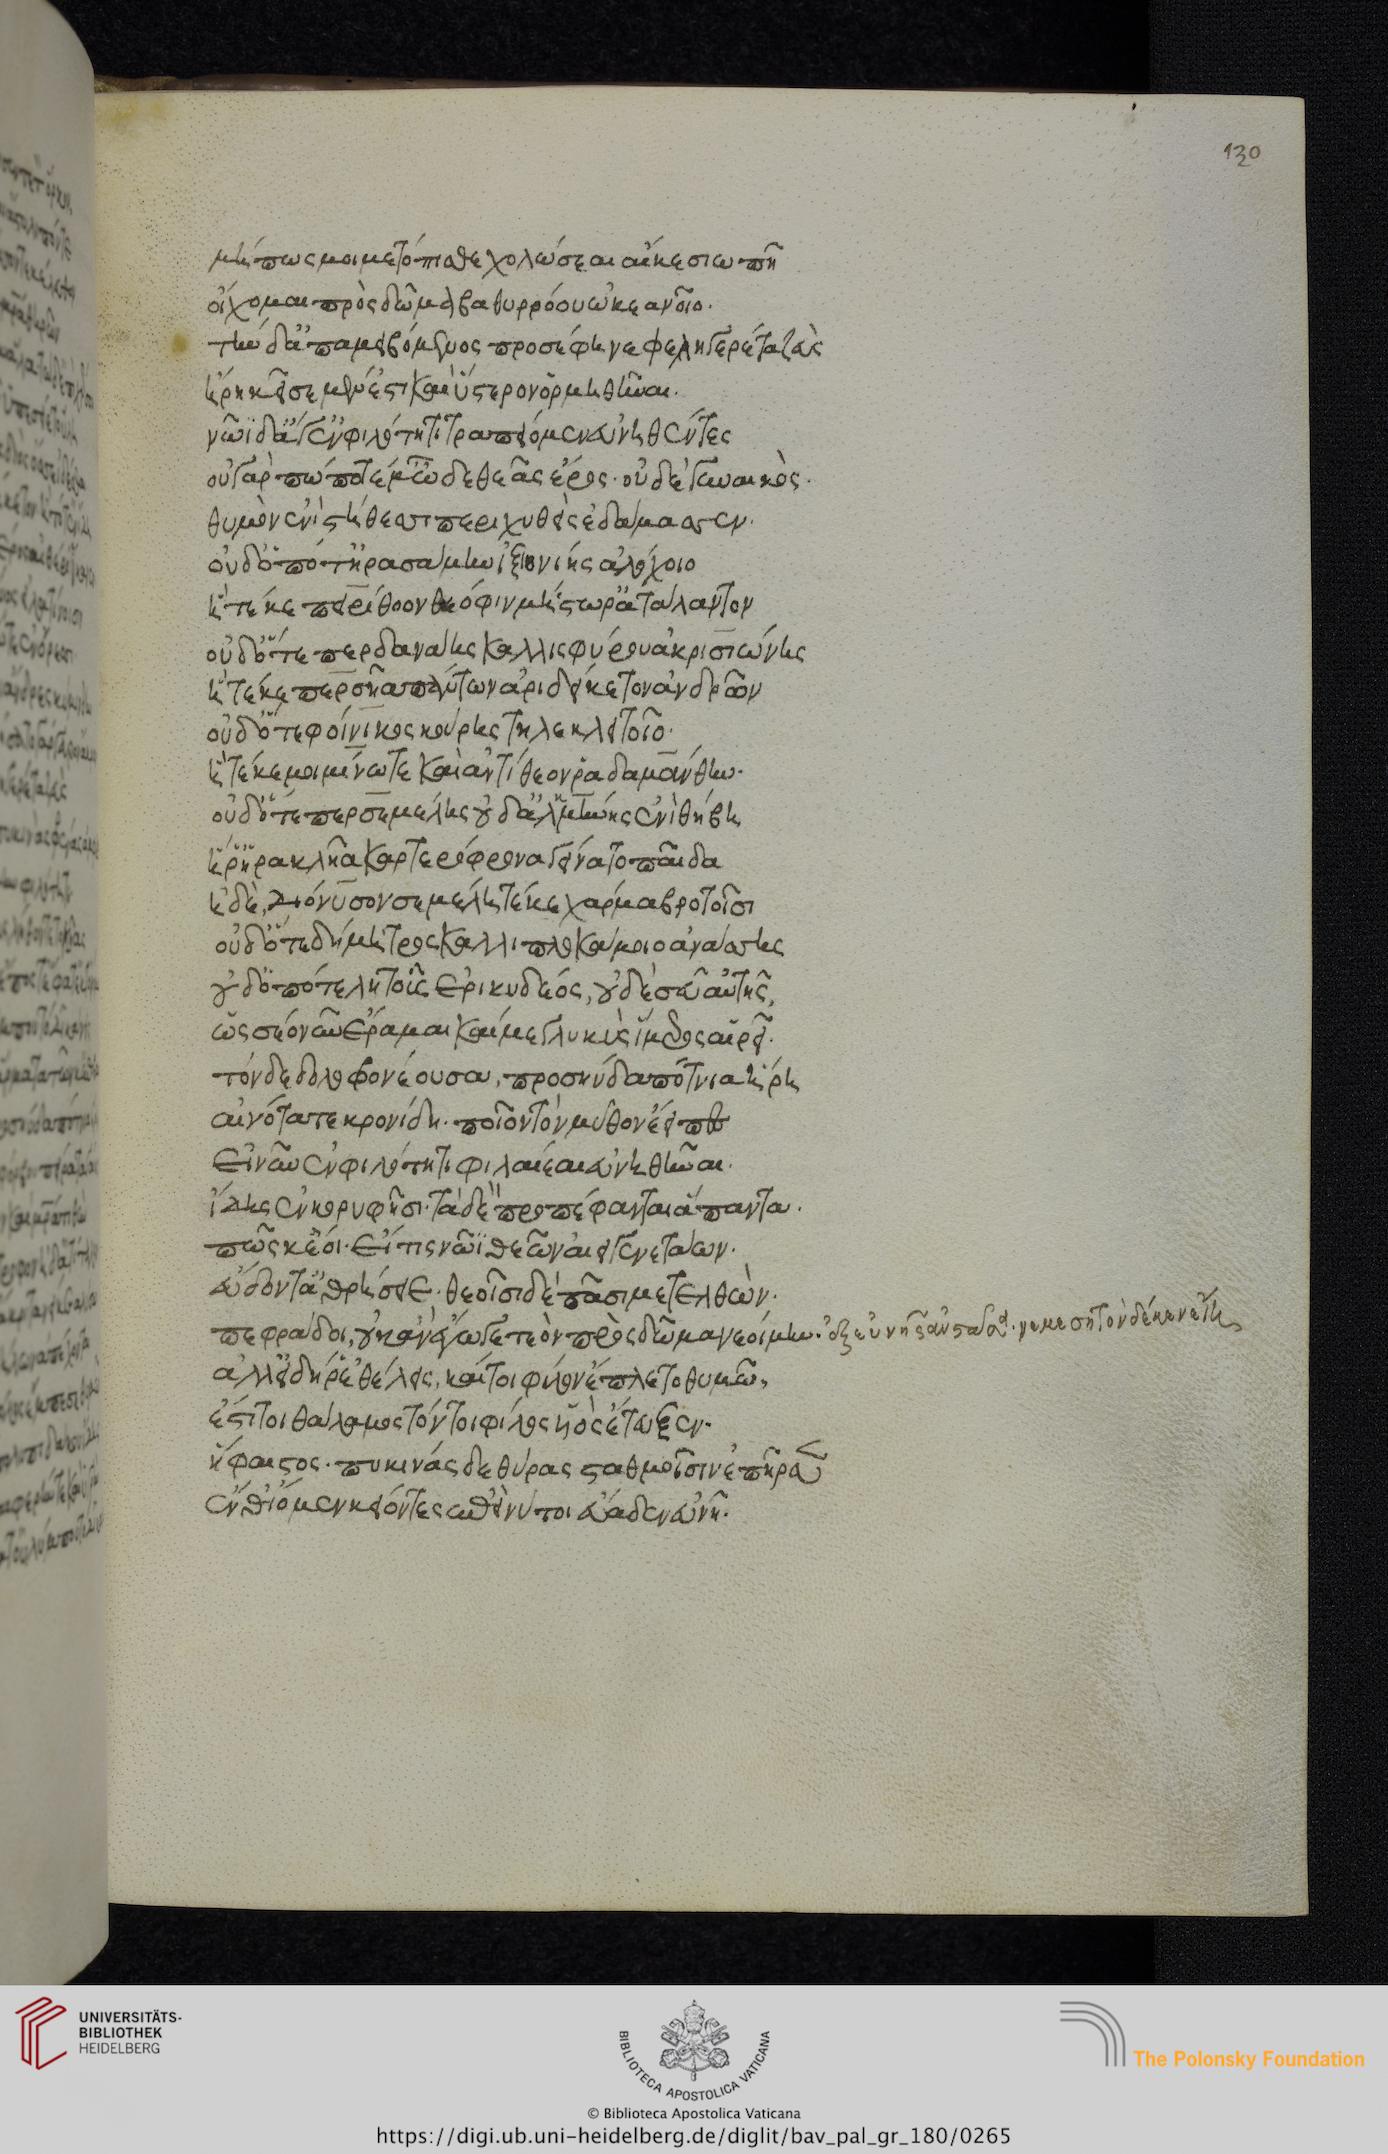 130
μή πως μοι μετόπισθε χολώσεαι αἴκε σιωπῆ
οἴχομαι πρὸς δῶμα βαθυρρόου ὠκεανοῖο.
τὴν δ' ἀπαμειβόμενος προσέφη νεφεληγερέτα ζεὺς
ἥρη κεῖσε μὲν ἔστι καὶ ὕστερον ὁρμηθῆναι.
νῶϊ δ' ἄγ' ἐν φιλότητι τραπείομεν εὐνηθέντες
οὐ γὰρ πώποτέ μ' ὧδε θεᾶς ἔρος. οὐδὲ γυναικὸς.
θυμὸν ἐνὶ στήθεσσι περιχυθεὶς ἐδάμασσεν.
οὐδ' ὁπότ' ἠρασάμην ἰξιονίης ἀλόχοιο
ἣ τέκε πειρίθοον θεόφιν μήστωρ ἀτάλαντον
οὐδ' ὅτε περ δανάης καλλισφύρου ἀκρισιώνης
ἣ τέκε περσῆα πάντων ἀριδείκετον ἀνδρῶν
οὐδ' ὅτε φοίνικος κούρης τηλεκλειτοῖο.
ἣ τέκε μοι μίνω τε καὶ ἀντίθεον ῥαδάμανθυν.
οὐδ' ὅτε περ σεμέλης οὐδ' ἀλκμήνης ἐνὶ θήβη
ἥ ῥ' ἡρακλῆα κρατερόφρονα γείνατο παῖδα
ἡ δὲ διόνυσον σεμέλη τέκε χάρμα βροτοῖσι
οὐδ' ὅτε δήμητρος καλλιπλοκάμοιο ἀνάσσης
οὐδ' ὁπότε λητοῦς ἐρικυδέος, οὐδὲ σεῦ αὐτῆς,
ὡς σέο νῦν ἔραμαι καί με γλυκὺς ἵμερος αἱρεῖ.
τὸν δὲ δολοφρονέουσα, προσηύδα πότνια ἥρη
αἰνότατε κρονίδη. ποῖον τὸν μῦθον ἔειπες
εἰ νῦν ἐν φιλότητι λιλαίεαι εὐνηθῆναι.
ἴδης ἐν κορυφῆσι. τὰ δὲ προπέφανται ἅπαντα.
πῶς κ' ἔοι. εἴ τις νῶϊ θεῶν αἰειγενετάων.
εὕδοντ' ἀθρήσειε. θεοῖσι δὲ πᾶσι μετελθὼν.
πεφράδοι, οὐκ ἂν ἔγωγε τεὸν πρὸς δῶμα νεοίμην. ἐξ εὐνῆς ἀνστᾶσα. νεμεσητὸν δέ κεν εἴη
ἀλλ' εἰ δή ῥ' ἐθέλεις, καί τοι φίλον ἔπλετο θυμῶ,
ἔστι τοι θάλαμος τόν τοι φίλος υἱὸς ἔτευξεν.
ἥφαιστος. πυκινὰς δὲ θύρας σταθμοῖσιν ἐπῆρσεν
ἔνθ' ἴομεν κείοντες ἐπεί νύ τοι εὔαδεν εὐνή.
UNIVERSITÄTS-
BIBLIOTHEK
HEIDELBERG
BIBLIOTECA APOSTOLICA VATICANA
The Polonsky Foundation
© Biblioteca Apostolica Vaticana
https://digi.ub.uni-heidelberg.de/diglit/bav_pal_gr_180/0265